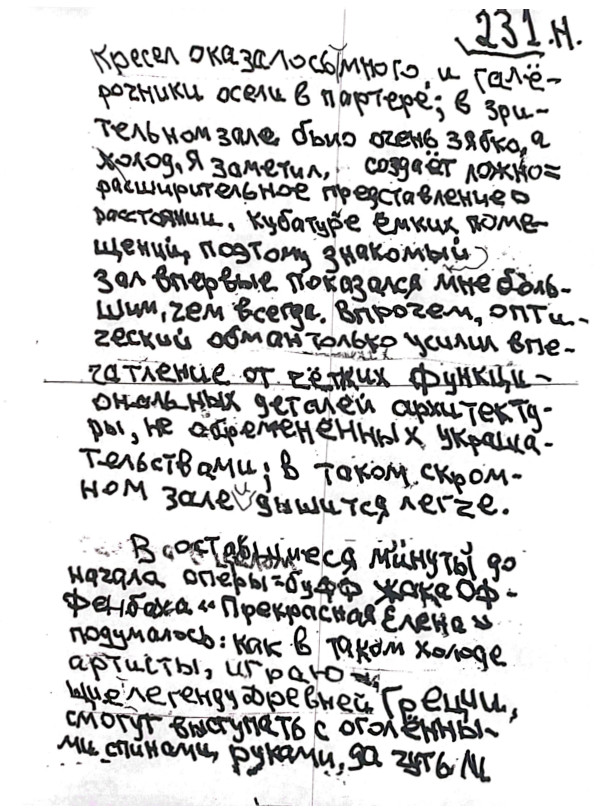 231.Н.
Кресел оказалось много, и галё-
рочники осели в партере; в зри-
тельном зале было очень зябко, а
холод, я заметил, создаёт ложно=
расширительное представление о
расстоянии, кубатуре ёмких поме-
щений, поэтому знакомый
зал впервые показался мне боль-
шим, чем всегда. Впрочем, опти-
ческий обман только усилил впе-
чатление от чётких функци-
ональных деталей архитекту-
ры, не обременённых украша-
тельствами; в таком скром-
ном зале дышится легче.
В оставшиеся минуты до
начала оперы=буфф Жака Оф-
фенбаха «Прекрасная Елена»
подумалось: как в таком холоде
артисты, играю-
щие легенду древней Греции,
смогут выступать с оголённы-
ми спинами, руками, да чуть ли